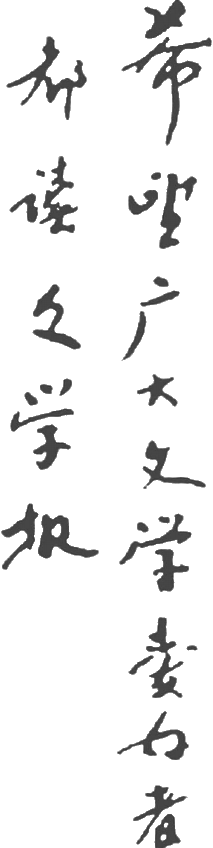 希望广大文学爱好者
都读文学报